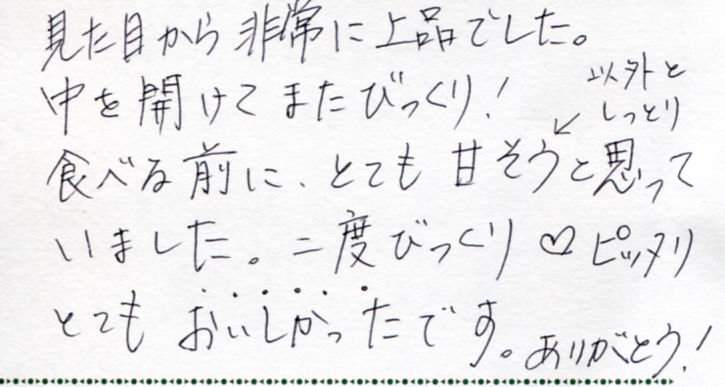 見た目から非常に上品でした。
中を開けてまたびっくり!
以外と
しっとり
食べる前に、とても甘そうと思って
いました。二度びっくり♡ピッタリ
とてもおいしかったです。ありがとう!